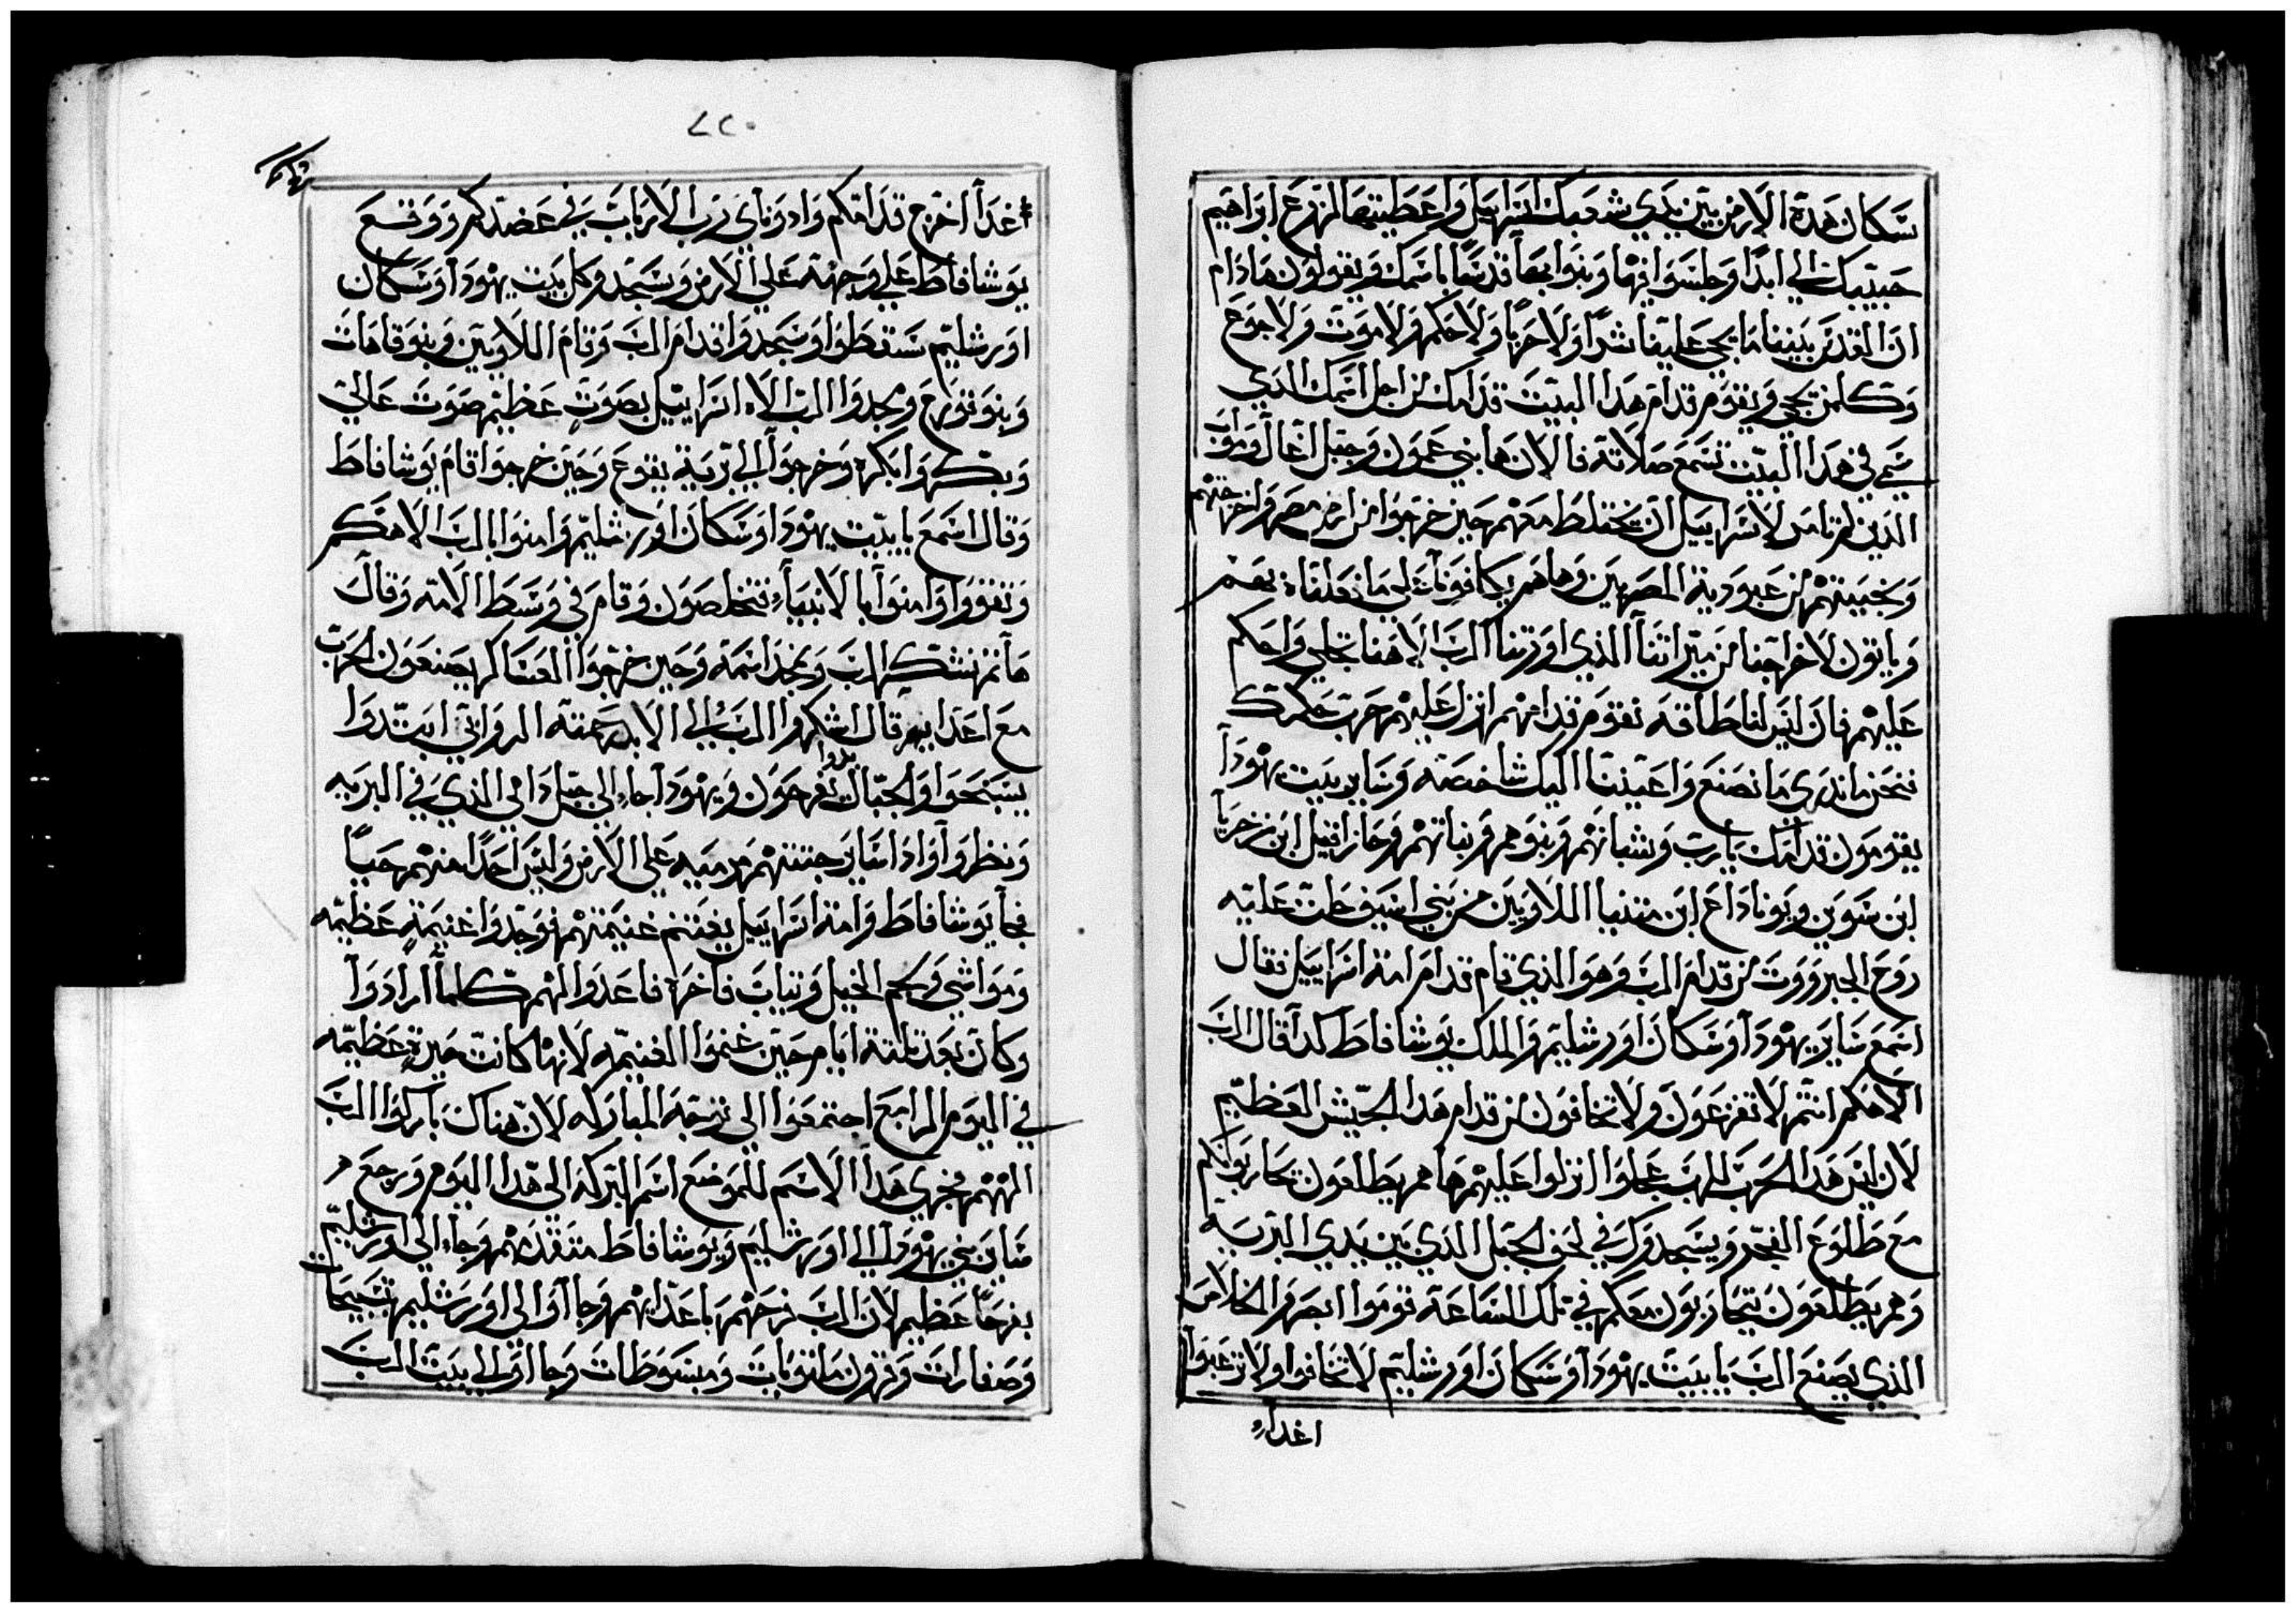 سكان هدة الارض بين يدي شعبك اسراييل واعطيتها لزرع ابراهيم
حبيبك الي ابدا وجلسوا فيها وبنوا بها قدسا باسمك ويقولون مادام
ان القدس بيننا ما يجي علينا شرا ولا حربا ولا حكم ولا موت ولا جوع
وكلمن يجي ويقوم قدام هدا البيت قدامك من اجل اسمك الدي
سمي في هدا البيت تسمع صلاتة فالان ها بني عمون وجبل
الدين لم تامر لاسراييل ان يختلط معهم حين خرجوا من ارض مصر واخرجتهم
ونجيتهم من عبودية المصريين وها هم يكافونا علي ما فعلناه بهم
وياتون لاخراجنا من ميراثنا الدي اورتنا الرب الاهنا تجلي واحكم
عليهم فان ليس لنا طاقه نقوم قدامهم انزل عليهم حرب
نحن ما ندري ما نصنع واعيننا اليك شاخصه وساير بيت يهودا
يقومون قدامك يارب وشبانهم وبنوهم وبناتهم وحازاقييل ابن زخريا
ابن شوين ويوناداع ابن متنيا اللاويين من بني اسيف حلت عليه
روح الجبرووت من قدام الرب وهو الدي قام قدام امة اسراييل فقال
اسمع ساير يهودا وسكان اورشليم والملك يوشافاط كدا قال الرب
الاهكم انتم لا تفزعون ولا تخافون من قدام هدا الجيش العظيم
لان ليس هدا الحرب للرب عجلوا انزلوا عليهم ها هم يطلعون تحاربونكم
مع طلوع الفجر ويسجدوك في لحف الجبل الدي بين يدي البرية
وهم يطلعون يتحاربون معكم في تلك الساعة قوموا ابصروا الخلاص
الدي يصنع الرب يا بيت يهودا وسكان اورشليم لا تخافوا ولا ترعبوا
اغداء
٧٢٠
غدا اخرج قدامكم وادوناي رب الارباب في عضدكم ووقع
يوشافاط علي وجهه علي الارض وسجد وكل بيت يهودا وسكان
اورشليم سقطوا وسجدوا قدام الرب وقام اللاويين وبنو قاهات
وبنو قورح ومجدوا الرب الاه اسراييل بصوت عظيم صوت عالي
وبكروا بكره وخرجوا الي برية يقوع وحين خرجوا قام يوشافاط
وقال اسمع يا بيت يهودا وسكان اورشليم وامنوا بالرب الاهكم
وتقووا وامنوا بالانبياء تتخلصون وقام في وسط الامه وقال
هانم نشكر الرب ونمجد اسمه وحين خرجوا العساكر يصنعون الحرب
مع اعدايهم قال اشكروا الرب الي الابد رحمته الدواتي ابتدوا
يسبحوا والجبال بدوا تفرحون ويهودا جاء الي جبل داني الدي في البريه
ونظروا وادا ساير جتتهم مرميه علي الارض وليس احدا منهم حيا
فجا يوشافاط وامة اسراييل يغتنم غنيمتهم فوجدوا غنيمة عظيمه
ومواشي ولحم الخيل وتياب فاخره فاعدوا لهم كلما ارادوا
وكان بعد تلتة ايام حين غنموا الغنيمه لانها كانت خيرة عظيمه
في اليوم الرابع اجتمعوا الي نزهة المباركه لان هناك باركوا الرب
الههم فجري هدا الاسم للموضع اسم البركه الي هدا اليوم ورجع
ساير بني يهودا الي اورشليم ويوشافاط متقدمهم وجاء الي اورشليم
بفرحا عظيم لان الرب فرحهم باعدايهم وجااوا الي اورشليم تسبيحات
وصفارات وقرون ملتويات ومبسوطات وجااوا الي بيت الرب